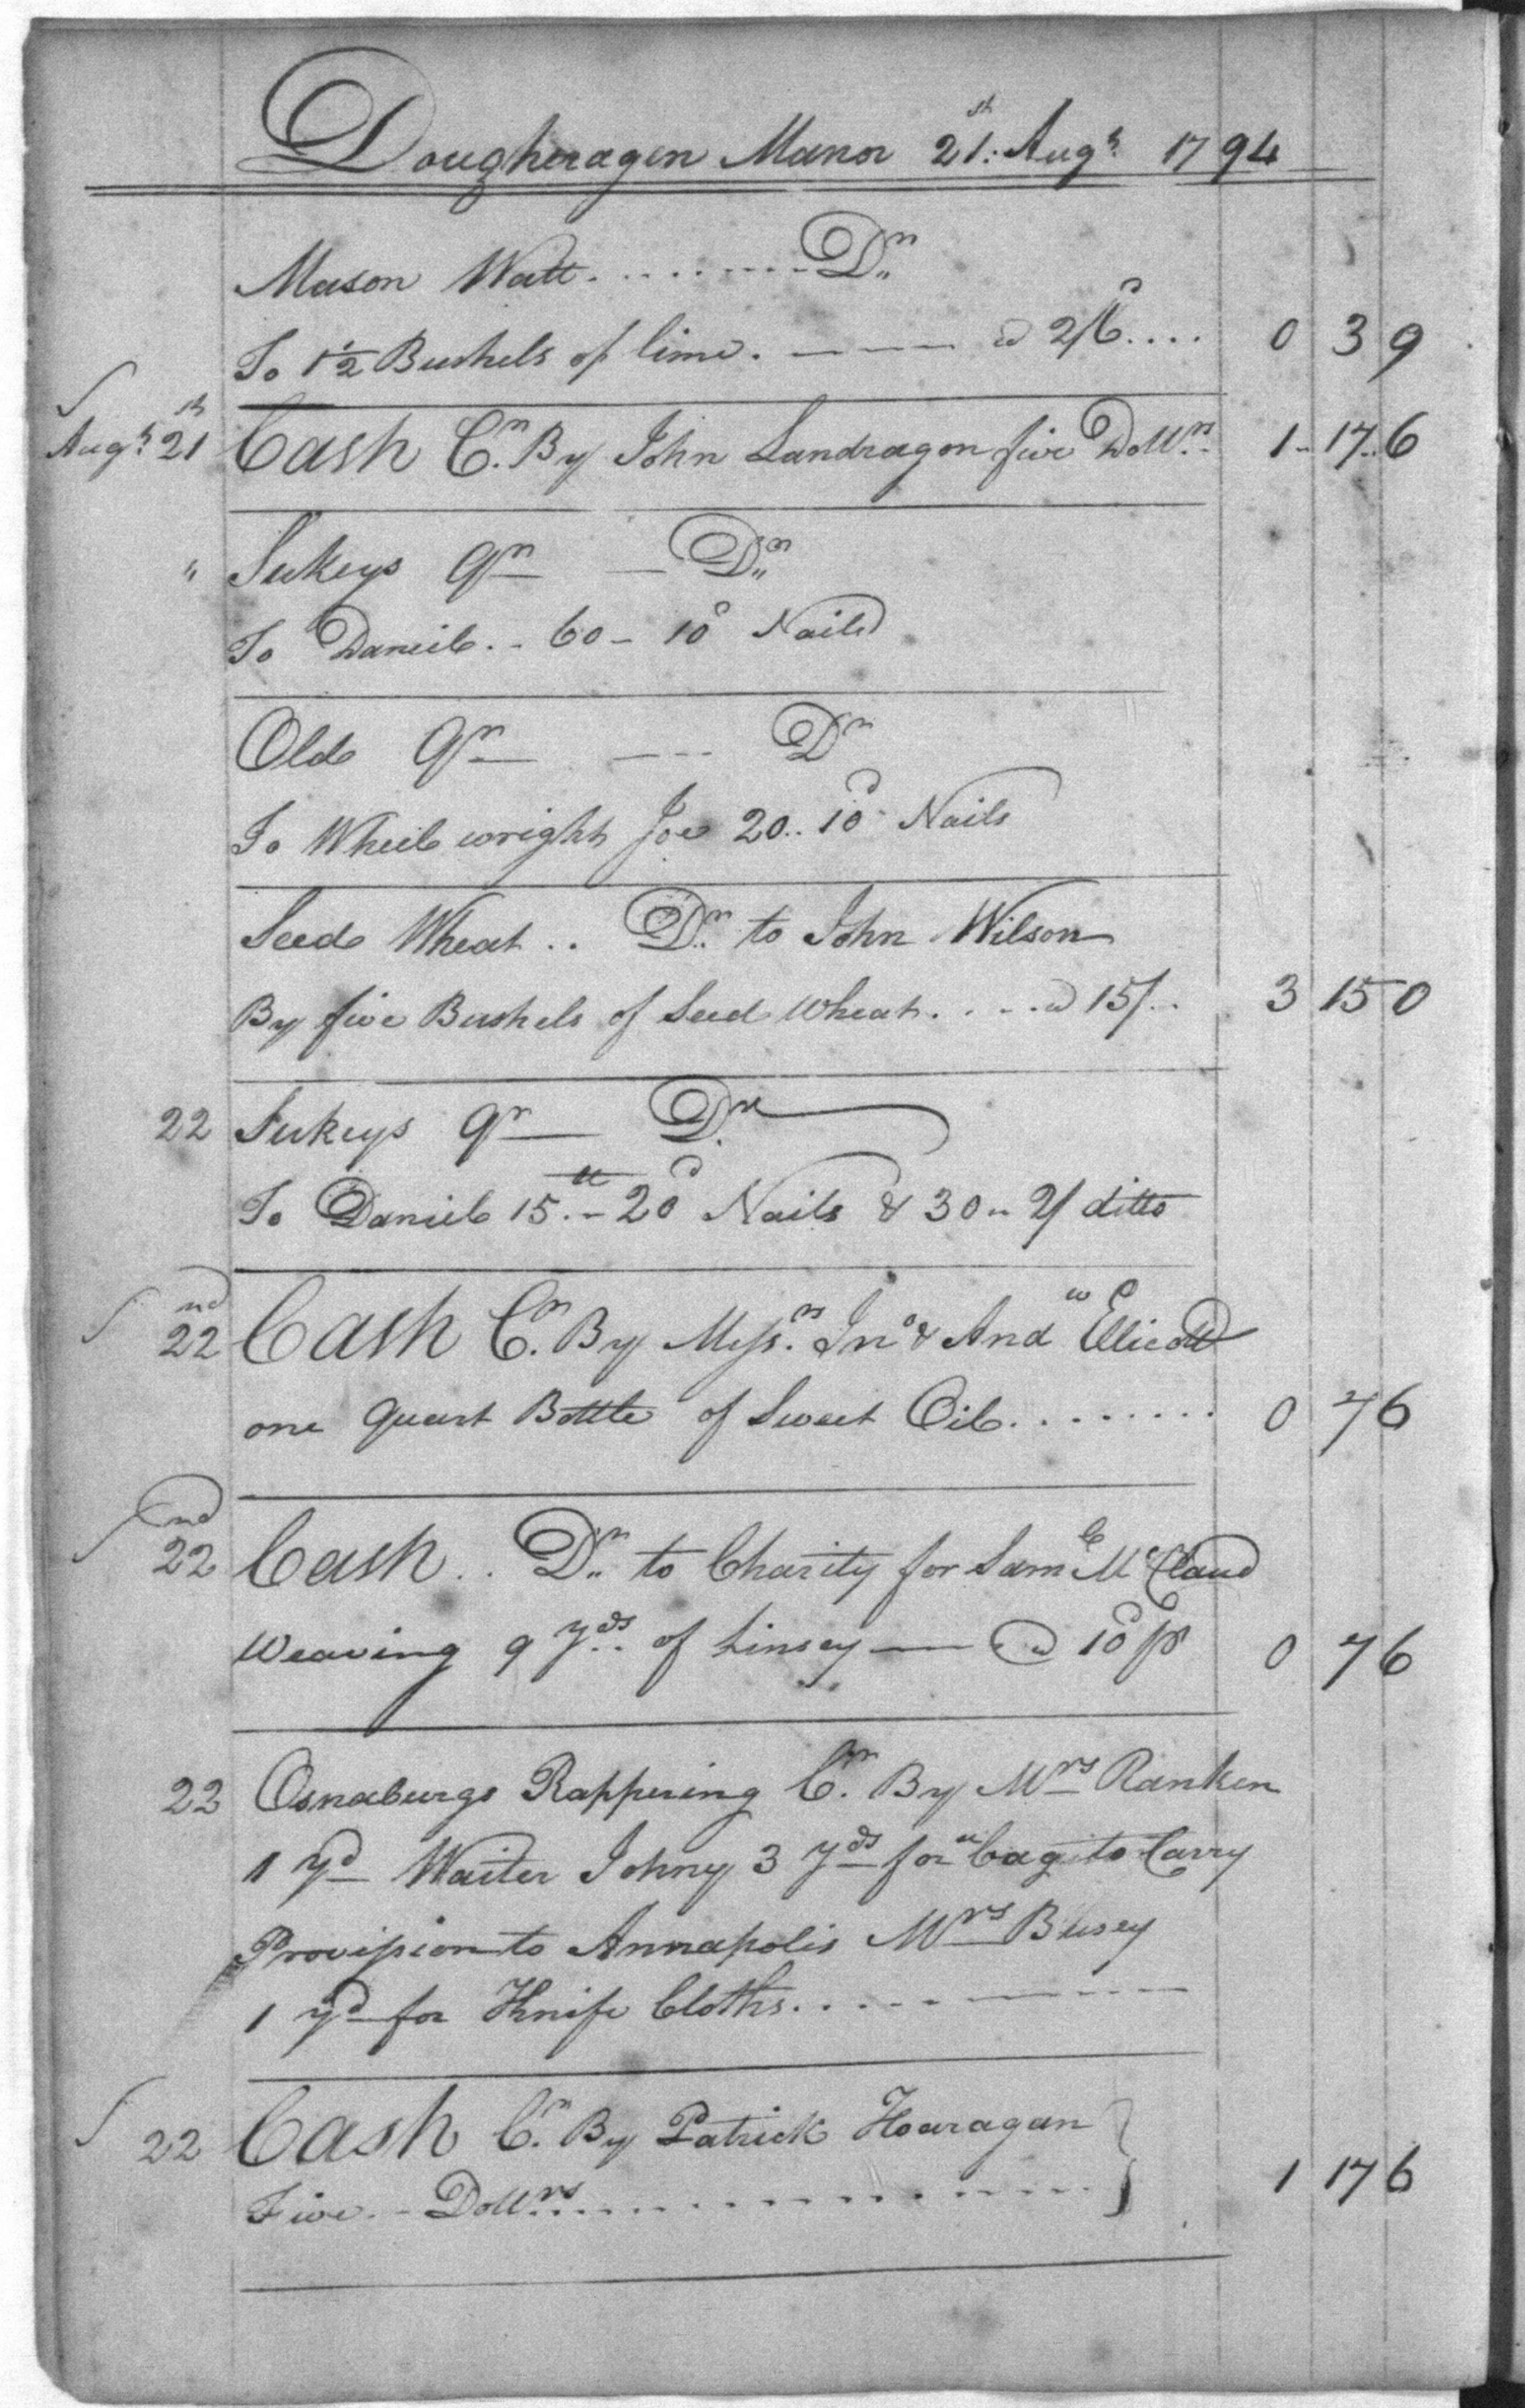 Dougheragen Manor 21:st Augt 1794
Mason Watt. ........ Dr
To 1 1/2 Bushels of lime. ---- a 2/6.... 0 3 9
Augt 21st Cash Cr. By John Landragon five Dollrs 1-17-6
" Sukeys Qr — Dr
To Daniel.. 60 - 10d Nails
Old Qr --- Dr
To Wheel wright Joe 20.. 10d Nails
Seed Wheat.. Dr to John Wilson
By five Bushels of Seed Wheat. ... a 15/.. 3 15 0
22 Sukeys Qr — Dr
To Daniel 15.- 20d Nails & 30.. 2/ ditto
22nd Cash Cr. By Messrs. Jno & Andw Ellicott
one quart Bottle of Sweet Oil........ 0 7 6
22nd Cash.. Dr to Charity for Saml McCland
Weaving 9 yds.. of Linsey — a 10d pr 0 7 6
22 Osnaburgs Rappering Cr. By Mrs Ranken
1 yd Waiter Johny 3 yds for a bag to Carry
Provision to Annapolis Mrs Busey
1 yd for Knife Cloths........
22 Cash Cr. By Patrick Hoaragan
Five.- Dollrs.............. 1 17 6